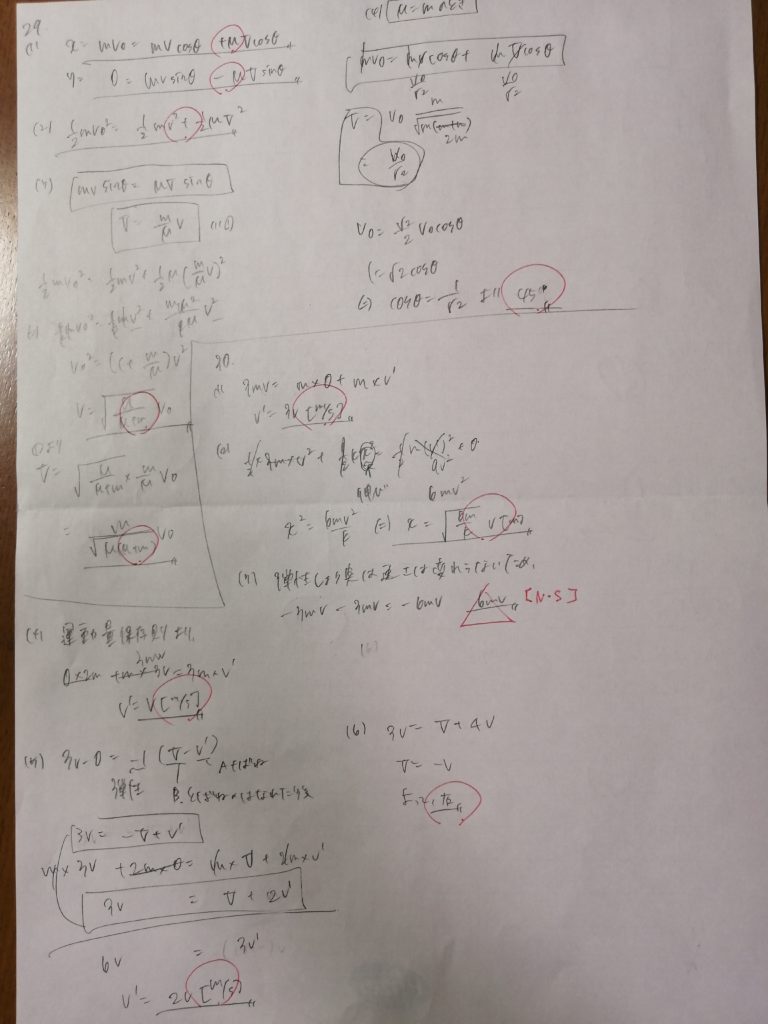 29
(1) x = mv₀ = mv cosθ + MV cosθ
y = 0 = mv sinθ - MV sinθ
(2) ½mv₀² = ½mv² + ½MV²
(3) mv sinθ = MV sinθ
V = m/M v
½mv₀² = ½mv² + ½M(m/M v)²
v₀² = (1 + m/M)v²
v = √(M/(M+m)) v₀
V = √(M/(M+m)) × m/M v₀
= m/√(M(M+m)) v₀
(4) M = m
mv₀ = mv cosθ + mV cosθ
v₀/√2 v₀/√2
V = v₀ m/√(m(m+m))
2m
= v₀/√2
v₀ = √2/2 v₀ cosθ
1 = √2 cosθ
cosθ = 1/√2 より 45°
30.
(1) 3mv = m×0 + m×v'
v' = 3v [m/s]
(2)
9mv² 6mv²
x² = 6mv²/k ⇔ x = √(6m/k) v [m]
(3) 弾性
-3mv - 3mv = -6mv 6mv [N·S]
(4) 運動量保存則より、
3mv
0×2m + m×3v = 3m×v'
v' = v [m/s]
(5) 3v - 0 = -1 (V - v')
弾性
3v = -V + v'
m × 3v + 2m×0 = m×V + 2m×v'
3v = V + 2v'
6v = 3v'
v' = 2v [m/s]
(6) 3v = V + 4v
V = -v
よって、左